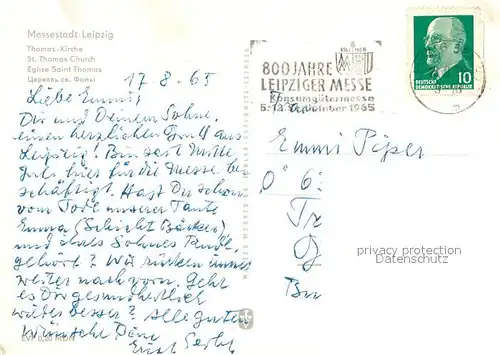 Messestadt Leipzig
Thomas-Kirche
St. Thomas Church
Eglise Saint Thomas
Церковь св. Фомы
17.8.65
Liebe Emmi!
Dir und Deinem Sohne,
einen herzlichen Gruß aus
Leipzig! Bin seit Mitte
Juli hier für die Messe be-
schäftigt. Hast Du schon
vom Tode unserer Tante
Emma
und ihres Sohnes
gehört? Wir rücken immer
weiter nach vorn. Geht
es Dir gesundheitlich
wieder besser? Alle guten
Wünsche Dein
EVP 0,20 MDN
800 JAHRE
LEIPZIGER MESSE
Konsumgütermesse
5.-12. September 1965
DEUTSCHE
DEMOKRATISCHE REPUBLIK
10
Emmi Piper
privacy protection
Datenschutz